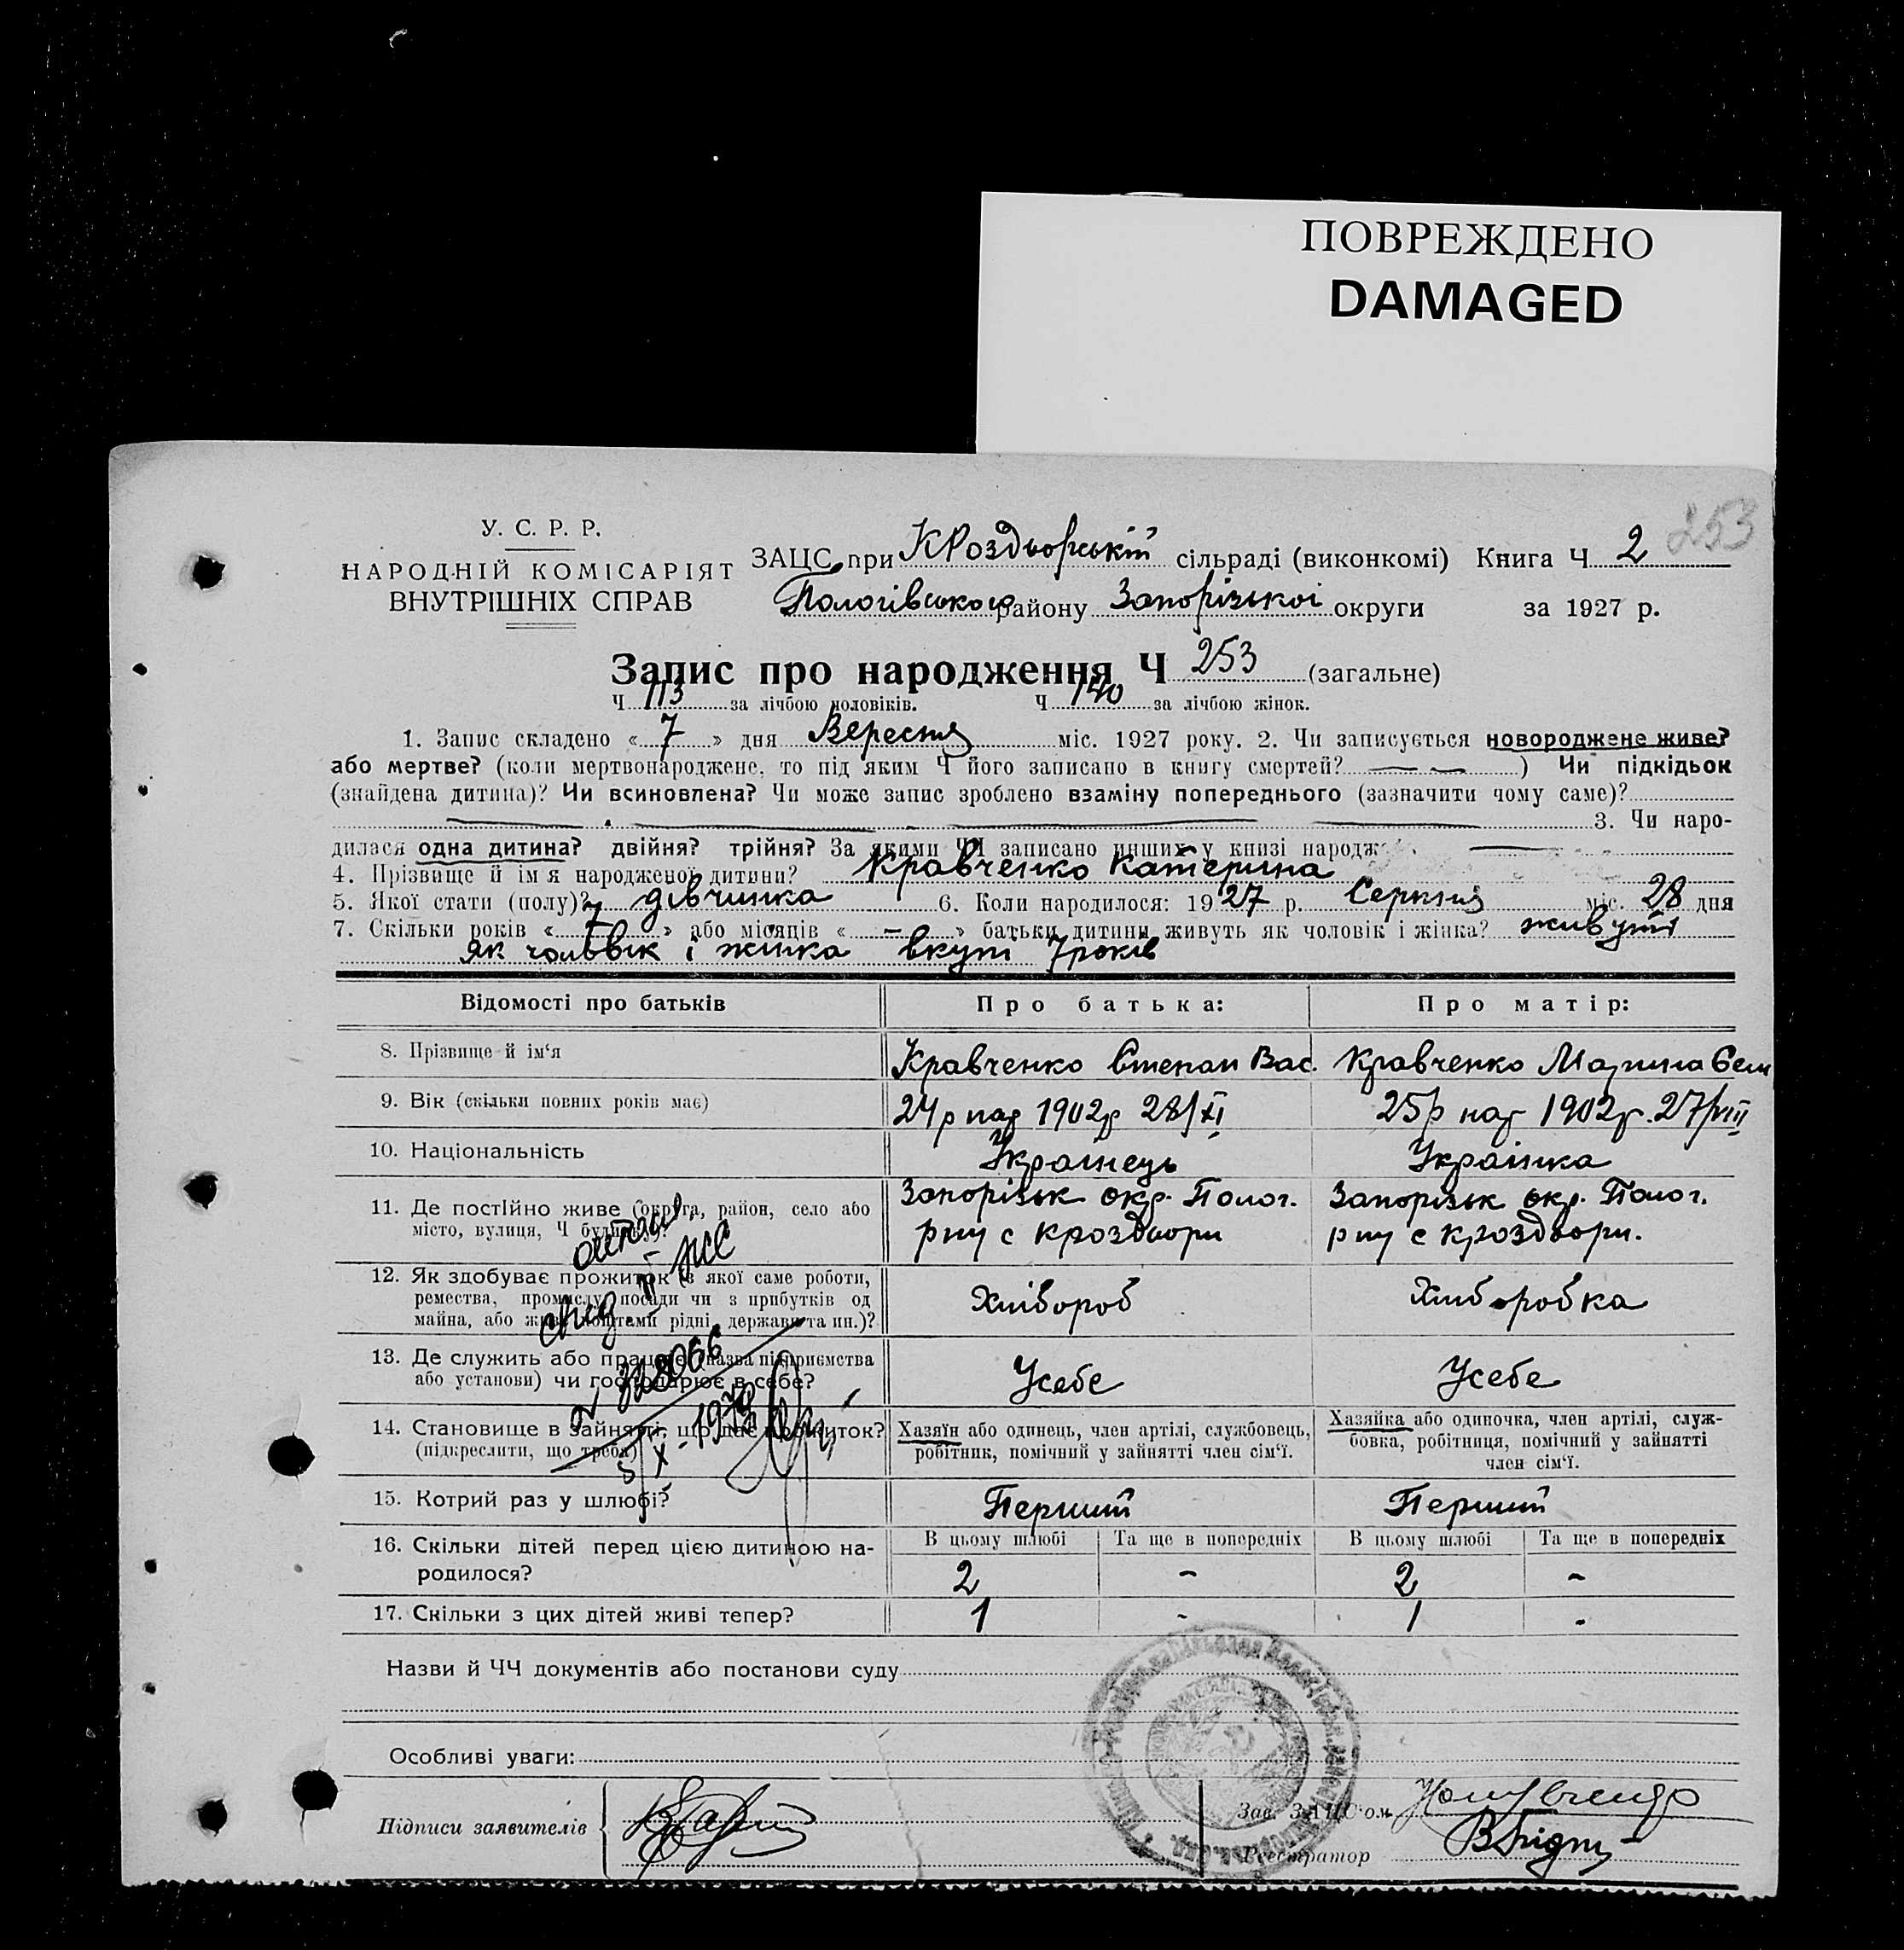 ПОВРЕЖДЕНО
DAMAGED
253
У. С. Р. Р.
НАРОДНІЙ КОМІСАРІЯТ
ВНУТРІШНІХ СПРАВ
ЗАЦС при КРоздорській сільраді (виконкомі) Книга Ч 2
Пологівського району Запорізької округи за 1927 р.
Запис про народження Ч 253 (загальне)
Ч 113 за лічбою чоловіків. Ч 140 за лічбою жінок.
1. Запис складено «7» дня Вересня міс. 1927 року. 2. Чи записується новороджене живе?
або мертве? (коли мертвонароджене, то під яким Ч його записано в книгу смертей? — —) Чи підкідьок
(знайдена дитина)? Чи всиновлена? Чи може запис зроблено взаміну попереднього (зазначити чому саме)?
3. Чи наро-
дилася одна дитина? двійня? трійня? За якими ЧЧ записано инших у книзі народж
4. Прізвище й ім'я народженої дитини? Кравченко Катерина
5. Якої стати (полу)? дівчинка 6. Коли народилося: 1927 р. Серпня міс. 28 дня
7. Скільки років «7» або місяців «-» батьки дитини живуть як чоловік і жінка? живуть
як чоловік і жінка вкупі 7 років
Відомості про батьків Про батька: Про матір:
8. Прізвище й ім'я Кравченко Степан Вас. Кравченко Марина Сем
9. Вік (скільки повних років має) 24 р нар 1902 р 28/XI 25 р нар 1902 р. 27/VIII
10. Національність Українець Українка
11. Де постійно живе (округа, район, село або Запорізьк окр. Полог. Запорізьк окр. Полог.
місто, вулиця, Ч будинку)? рну с Кроздори рну с Кроздори.
12. Як здобуває прожиток (з якої саме роботи,
ремества, промислу, посади чи з прибутків од Хлібороб Хліборобка
майна, або живе коштами рідні, держави та ин.)?
13. Де служить або працює (назва підприємства
або установи) чи господарює в себе? Усебе Усебе
14. Становище в зайнятті, що дає прожиток? Хазяїн або одинець, член артілі, службовець, Хазяйка або одиночка, член артілі, служ-
(підкреслити, що треба) робітник, помічний у зайнятті член сім'ї. бовка, робітниця, помічний у зайнятті
член сім'ї.
328066
5/X-1973
15. Котрий раз у шлюбі? Перший Перший
16. Скільки дітей перед цією дитиною на- В цьому шлюбі Та ще в попередніх В цьому шлюбі Та ще в попередніх
родилося? 2 - 2 -
17. Скільки з цих дітей живі тепер? 1 - 1 -
Назви й ЧЧ документів або постанови суду
Особливі уваги:
Підписи заявителів Зав. ЗАЦС'ом
Реєстратор